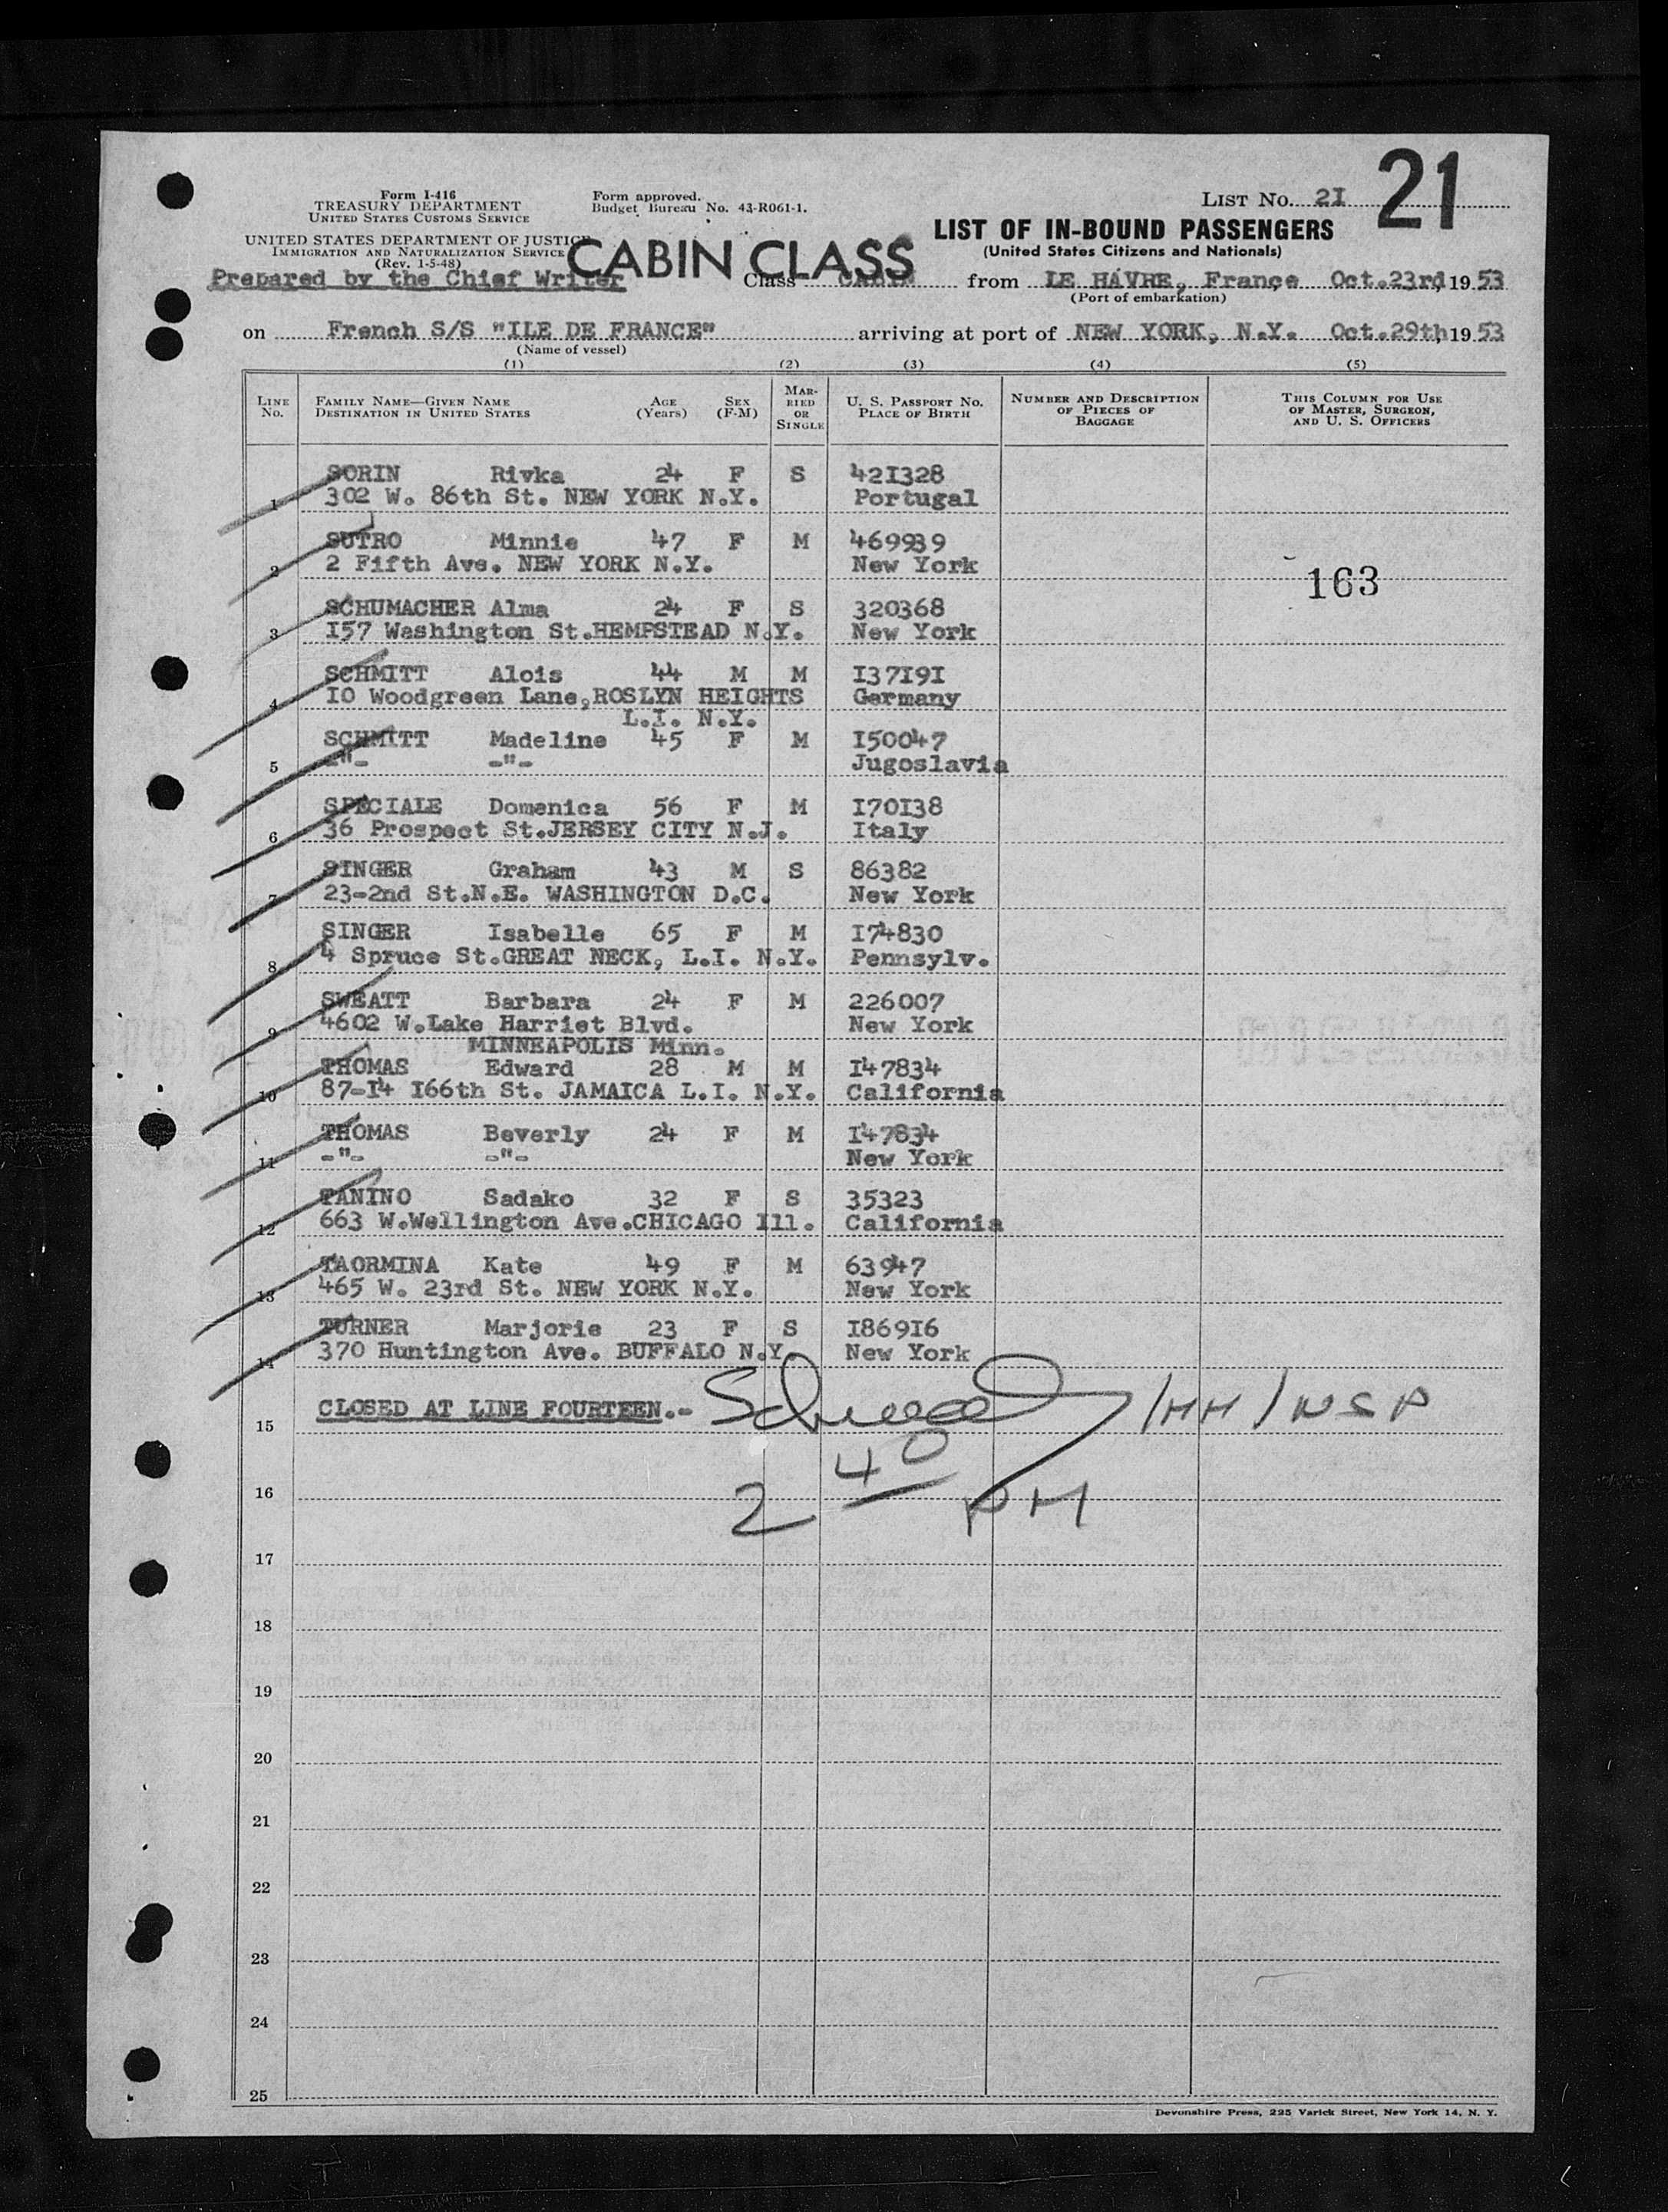 Form I-416
TREASURY DEPARTMENT
UNITED STATES CUSTOMS SERVICE
UNITED STATES DEPARTMENT OF JUSTICE
IMMIGRATION AND NATURALIZATION SERVICE
(Rev. 1-5-48)
Form approved.
Budget Bureau No. 43-R061-1.
LIST No. 2I 21
LIST OF IN-BOUND PASSENGERS
(United States Citizens and Nationals)
CABIN CLASS
Prepared by the Chief Writer Class CABIN from LE HAVRE, France Oct.23rd, 1953
(Port of embarkation)
on French S/S "ILE DE FRANCE" arriving at port of NEW YORK, N.Y. Oct.29th, 1953
(Name of vessel)
(1) (2) (3) (4) (5)
LINE No. FAMILY NAME—GIVEN NAME DESTINATION IN UNITED STATES AGE (Years) SEX (F-M) MARRIED OR SINGLE U. S. PASSPORT No. PLACE OF BIRTH NUMBER AND DESCRIPTION OF PIECES OF BAGGAGE THIS COLUMN FOR USE OF MASTER, SURGEON, AND U. S. OFFICERS
SORIN Rivka 24 F S 42I328
1 302 W. 86th St. NEW YORK N.Y. Portugal
SUTRO Minnie 47 F M 469939
2 2 Fifth Ave. NEW YORK N.Y. New York
163
SCHUMACHER Alma 24 F S 320368
3 I57 Washington St.HEMPSTEAD N.Y. New York
SCHMITT Alois 44 M M I37I9I
4 I0 Woodgreen Lane,ROSLYN HEIGHTS Germany
L.I. N.Y.
SCHMITT Madeline 45 F M I50047
5 -"- -"- Jugoslavia
SPECIALE Domenica 56 F M I70I38
6 36 Prospect St.JERSEY CITY N.J. Italy
SINGER Graham 43 M S 86382
7 23-2nd St.N.E. WASHINGTON D.C. New York
SINGER Isabelle 65 F M I74830
8 4 Spruce St.GREAT NECK, L.I. N.Y. Pennsylv.
SWEATT Barbara 24 F M 226007
9 4602 W.Lake Harriet Blvd. New York
MINNEAPOLIS Minn.
THOMAS Edward 28 M M I47834
10 87-I4 I66th St. JAMAICA L.I. N.Y. California
THOMAS Beverly 24 F M I47834
11 -"- -"- New York
TANINO Sadako 32 F S 35323
12 663 W.Wellington Ave.CHICAGO Ill. California
TAORMINA Kate 49 F M 63947
13 465 W. 23rd St. NEW YORK N.Y. New York
TURNER Marjorie 23 F S I869I6
14 370 Huntington Ave. BUFFALO N.Y. New York
15 CLOSED AT LINE FOURTEEN.-
2 40 PM
16
17
18
19
20
21
22
23
24
25
Devonshire Press, 225 Varick Street, New York 14, N. Y.